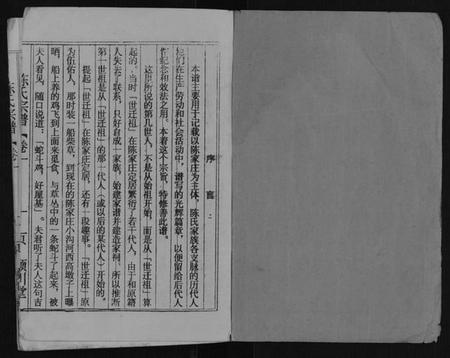 序言
本谱主要用于记载以陈家庄为主体，陈氏家族各支脉的历代人
他们在生产劳动和社会活动中，谱写的光辉篇章，以便留给后代人
作纪念和效法之用。本着这个宗旨，特修善此谱。
这里所说的第几世人，不是从始祖开始，而是从「世迁祖」算
起的。当时「世迁祖」在陈家庄定居繁衍了若干代人，由于和原籍
人失去了联系，只好自成一家族，始建家谱并建造家祠。所以推渐
第一世祖是从「世迁祖」的那一代人（或以后的某代人）开始的。
提起「世迁祖」在陈家庄定居，还有一段趣事。「世迁祖」原
为伍佑人，那时装一船柴草，到现在的陈家庄小沟河西高墩子上曝
晒，船上养的鸡飞到上面来觅食，与草丛中的一条蛇斗了起来，被
夫人看见，随口说道：「蛇斗鸡，好屋基」。夫君听了夫人这句吉
陈氏宗谱 卷一
一页